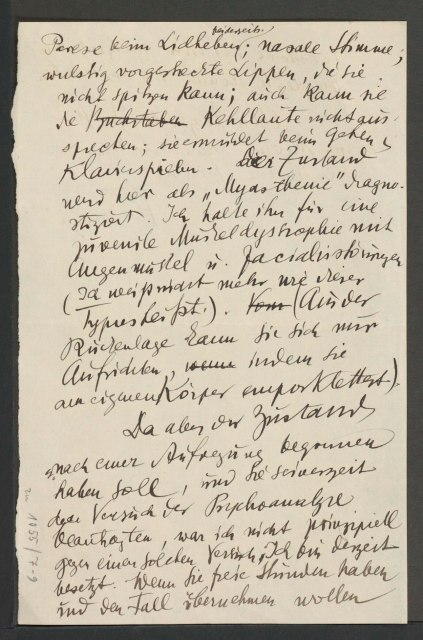 Parese beim Lidheben beiderseits; nasale Stimme;
wulstig vorgestreckte Lippen, die sie
nicht spitzen kann; auch kann sie
die Buchstaben Kehllaute nicht aus-
sprechen; sie ermüdet beim Gehen,
Klavierspielen. Der Zustand
wird hier als „Myasthenie" diagno-
stiziert. Ich halte ihn für eine
juvenile Muskeldystrophie mit
Augenmuskel u. Facialisstörungen
(Ich weiß nicht mehr wie dieser
Typus heißt.). Vom (Aus der
Rückenlage kann sie sich nur
Aufrichten, wenn indem sie
am eigenen Körper emporklettert).
Da aber der Zustand
nach einer Aufregung begonnen
haben soll, und Sie seinerzeit
den Versuch der Psychoanalyse
beantragten, war ich nicht prinzipiell
gegen einen solchen Versuch. Ich bin derzeit
besetzt. Wenn Sie freie Stunden haben
und den Fall übernehmen wollen